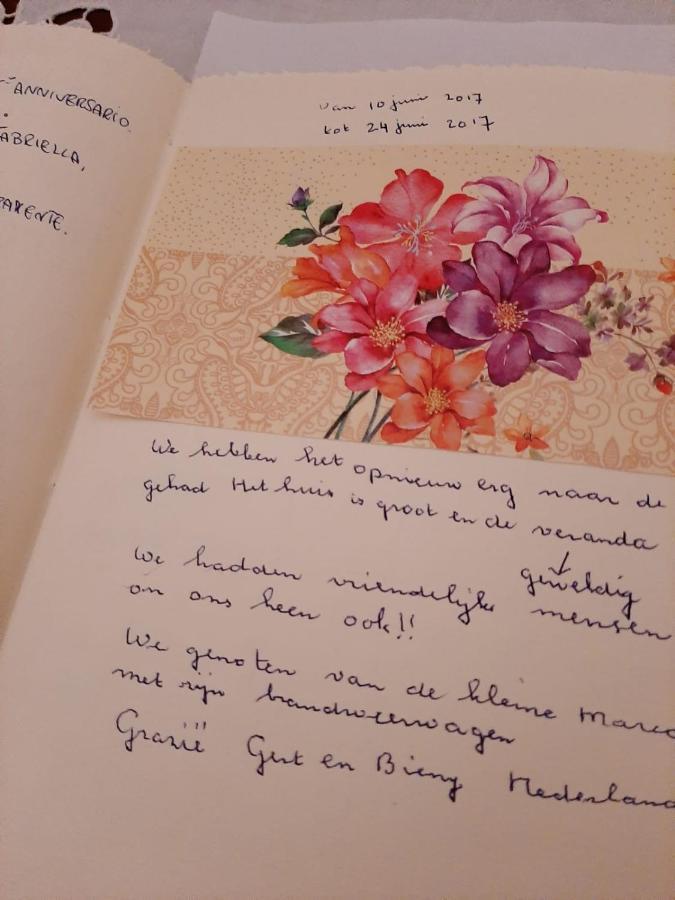 ANNIVERSARIO.
ABRIELLA,
PARENTE.
van 10 juni 2017
tot 24 juni 2017
We hebben het opnieuw erg naar de
gehad Het huis is groot en de veranda
↓
geweldig
We hadden vriendelijke mensen
om ons heen ook!!
We genoten van de kleine Marco
met zijn brandweerwagen
Grazië Gert en Bieny Nederland